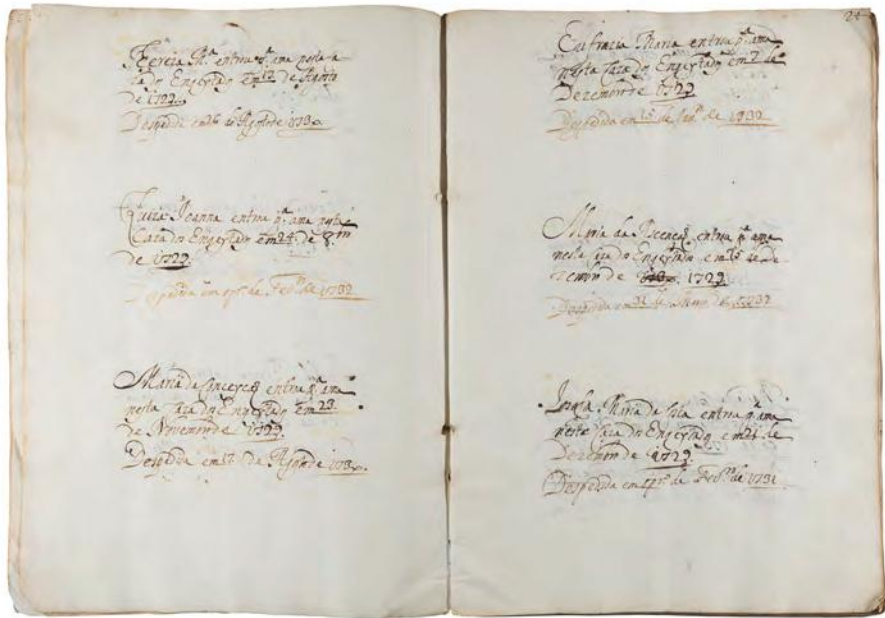 Thereza Mª. entrou pª. ama nesta Ca
za dos Engeytados em 12 de Agosto
de 1729.
Despedida em 26 de Agosto de 1730.
Luiza Joanna entrou pª. ama nesta
Caza dos Engeytados em 24 de 8.bro
de 1729.
Despedida em pr.º de Fevr.º de 1732
Maria da Conceyção entrou pª. ama
nesta Caza dos Engeytados em 23
de Novembro de 1729.
Despedida em 12 de Agosto de 1730.
24
Eufrazia Maria entrou pª. ama
nesta Caza dos Engeytados em 2 de
Dezembro de 1729
Despedida em 15 de Janr.º de 1732
Maria da Ascenção entrou pª. ama
nesta Caza dos Engeytados em 15 de De-
zembro de 1729.
Despedida em 31 de de 1732
Maria de entrou pª. ama
nesta Caza dos Engeytados em 21 de
Dezembro de 1729.
Despedida em pr.º de Fevr.º de 1731